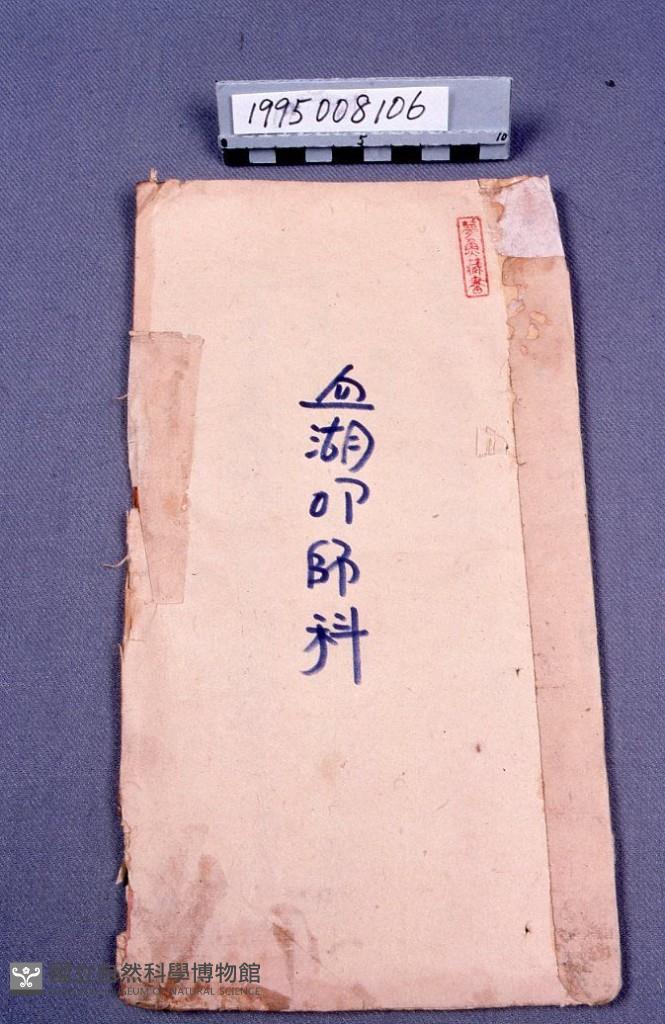 1995008106
5
10
血湖叩師科
國立自然科學博物館
MUSEUM OF NATURAL SCIENCE